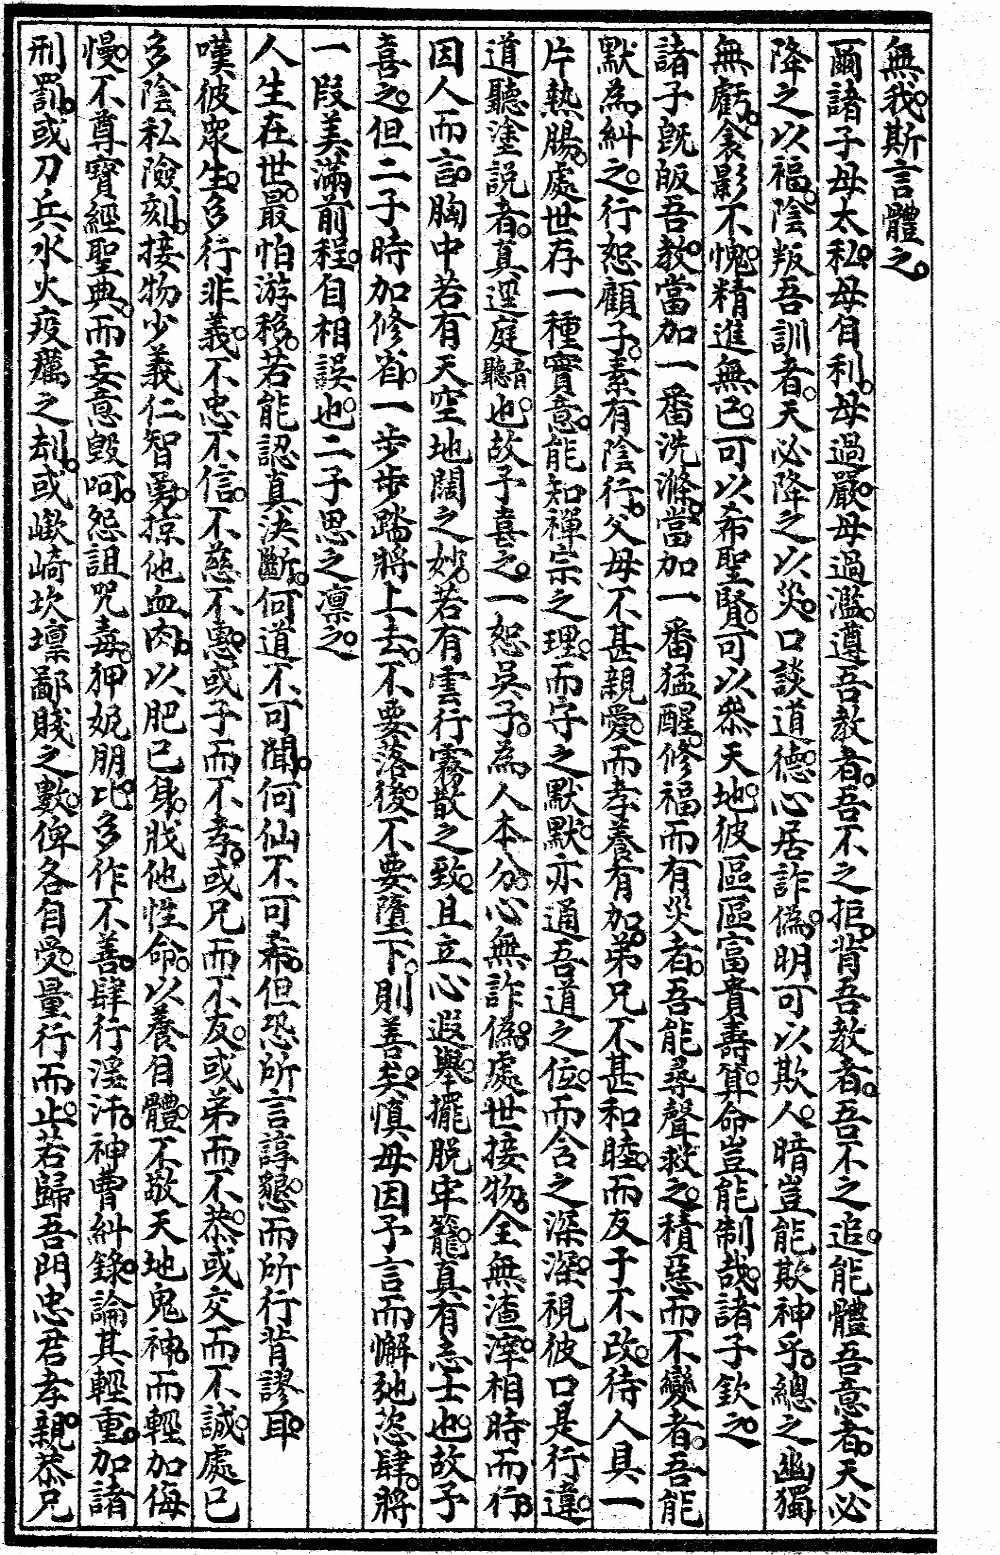 無我斯言體之
爾諸子毋太私毋自利毋過嚴毋過濫遵吾教者吾不之拒背吾教者吾不之追能體吾意者天必
降之以福陰叛吾訓者天必降之以災口談道德心居詐偽明可以欺人暗豈能欺神乎總之幽獨
無虧衾影不愧精進無已可以希聖賢可以參天地彼區區富貴壽算命豈能制哉諸子欽之
諸子既皈吾教當加一番洗滌當加一番猛醒修福而有災者吾能尋聲救之積惡而不變者吾能
默為糾之行恕顧子素有陰行父母不甚親愛而孝養有加弟兄不甚和睦而友于不改待人具一
片熱腸處世存一種實意能知禪宗之理而守之默默亦通吾道之位而含之深深視彼口是行違
道聽塗説者真逕庭聽音也故予喜之一恕吳子為人本分心無詐偽處世接物全無渣滓相時而行
因人而言胸中若有天空地闊之妙若有雲行霧散之致且立心遐舉擺脱牢籠真有志士也故予
喜之但二子時加修省一步步踹將上去不要落後不要墮下則善矣慎毋因予言而懈弛恣肆將
一段美滿前程自相誤也二子思之凛之
人生在世最怕游移若能認真決斷何道不可聞何仙不可希但恐所言諄懇而所行背謬耳
嘆彼眾生多行非義不忠不信不慈不惠或子而不孝或兄而不友或弟而不恭或交而不誠處已
多陰私險刻接物少義仁智勇掠他血肉以肥己身戕他性命以養自體不敬天地鬼神而輕加侮
慢不尊寶經聖典而妄意毀呵怨詛咒毒狎妮朋比多作不善肆行淫汙神曹糾錄論其輕重加諸
刑罰或刀兵水火疫癘之刦或嶔崎坎壈鄙賤之數俾各自受量行而止若歸吾門忠君孝親恭兄